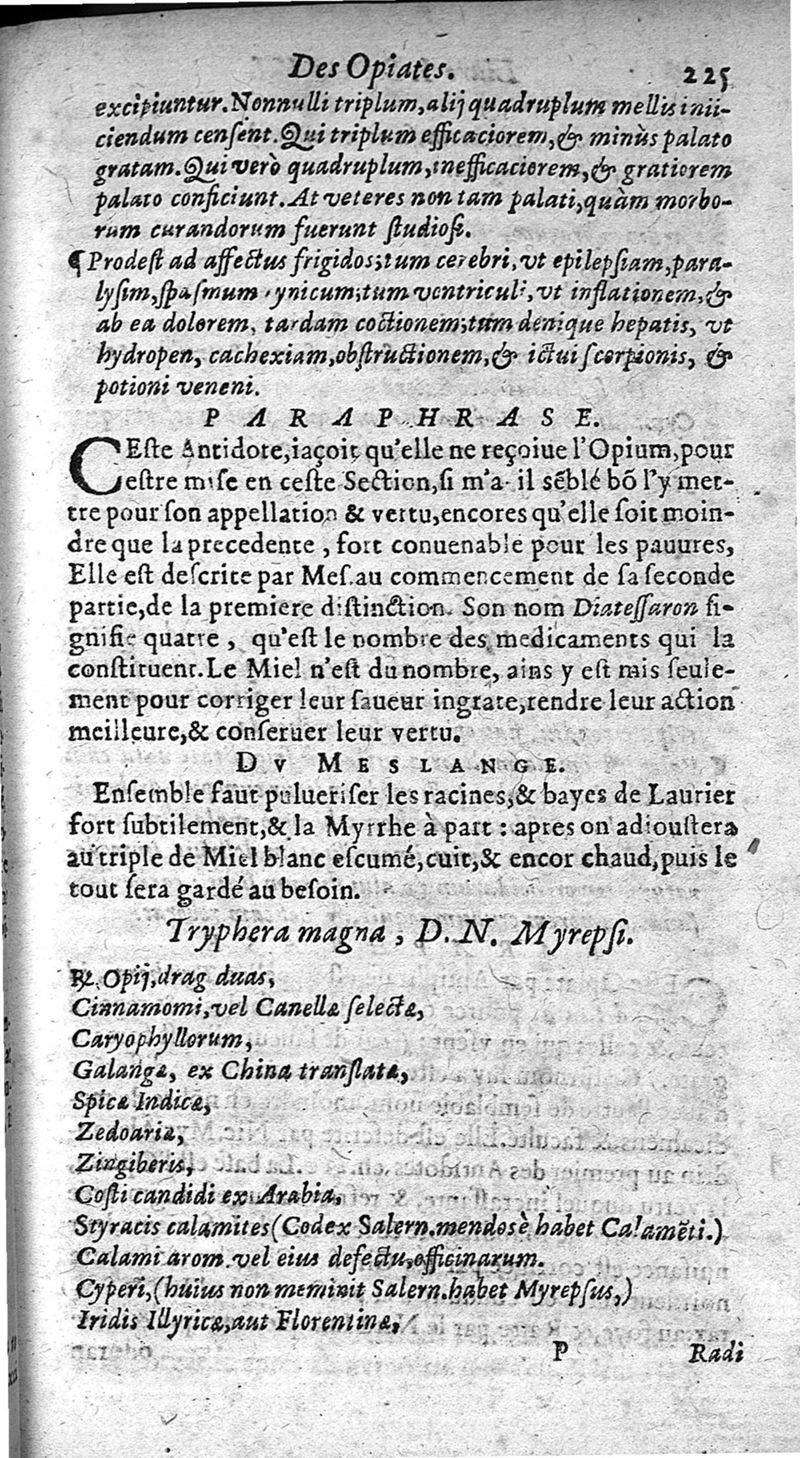 Des Opiates. 225
excipiuntur. Nonnulli triplum, alij quadruplum mellis inii-
ciendum censent. Qui triplum efficaciorem, & minùs palato
gratam. Qui verò quadruplum, inefficaciorem, & gratiorem
palato conficiunt. At veteres non tam palati, quàm morbo-
rum curandorum fuerunt studiosi.
¶ Prodest ad affectus frigidos; tum cerebri, vt epilepsiam, para-
lysim, spasmum cynicum; tum ventriculi, vt inflationem, &
ab ea dolorem, tardam coctionem; tum denique hepatis, vt
hydropen, cachexiam, obstructionem, & ictui scorpionis, &
potioni veneni.
PARAPHRASE.
CEste Antidote, iaçoit qu'elle ne reçoiue l'Opium, pour
estre mise en ceste Section, si m'a il sẽblé bõ l'y met-
tre pour son appellation & vertu, encores qu'elle soit moin-
dre que la precedente, fort conuenable pour les pauures,
Elle est descrite par Mes. au commencement de sa seconde
partie, de la premiere distinction. Son nom Diatessaron si-
gnifie quatre, qu'est le nombre des medicaments qui la
constituent. Le Miel n'est du nombre, ains y est mis seule-
ment pour corriger leur saueur ingrate, rendre leur action
meilleure, & conseruer leur vertu.
DV MESLANGE.
Ensemble faut pulueriser les racines, & bayes de Laurier
fort subtilement, & la Myrrhe à part : apres on adioustera
au triple de Miel blanc escumé, cuit, & encor chaud, puis le
tout sera gardé au besoin.
Tryphera magna, D. N. Myrepsi.
℞. Opij, drag duas,
Cinnamomi, vel Canellæ selectæ,
Caryophyllorum,
Galangæ, ex China translatæ,
Spicæ Indicæ,
Zedoariæ,
Zingiberis,
Costi candidi ex Arabia,
Styracis calamites (Codex Salern. mendosè habet Calamẽti.)
Calami arom. vel eius defectu, officinarum.
Cyperi, (huius non meminit Salern. habet Myrepsus,)
Iridis Illyricæ, aut Florentinæ,
P Radi